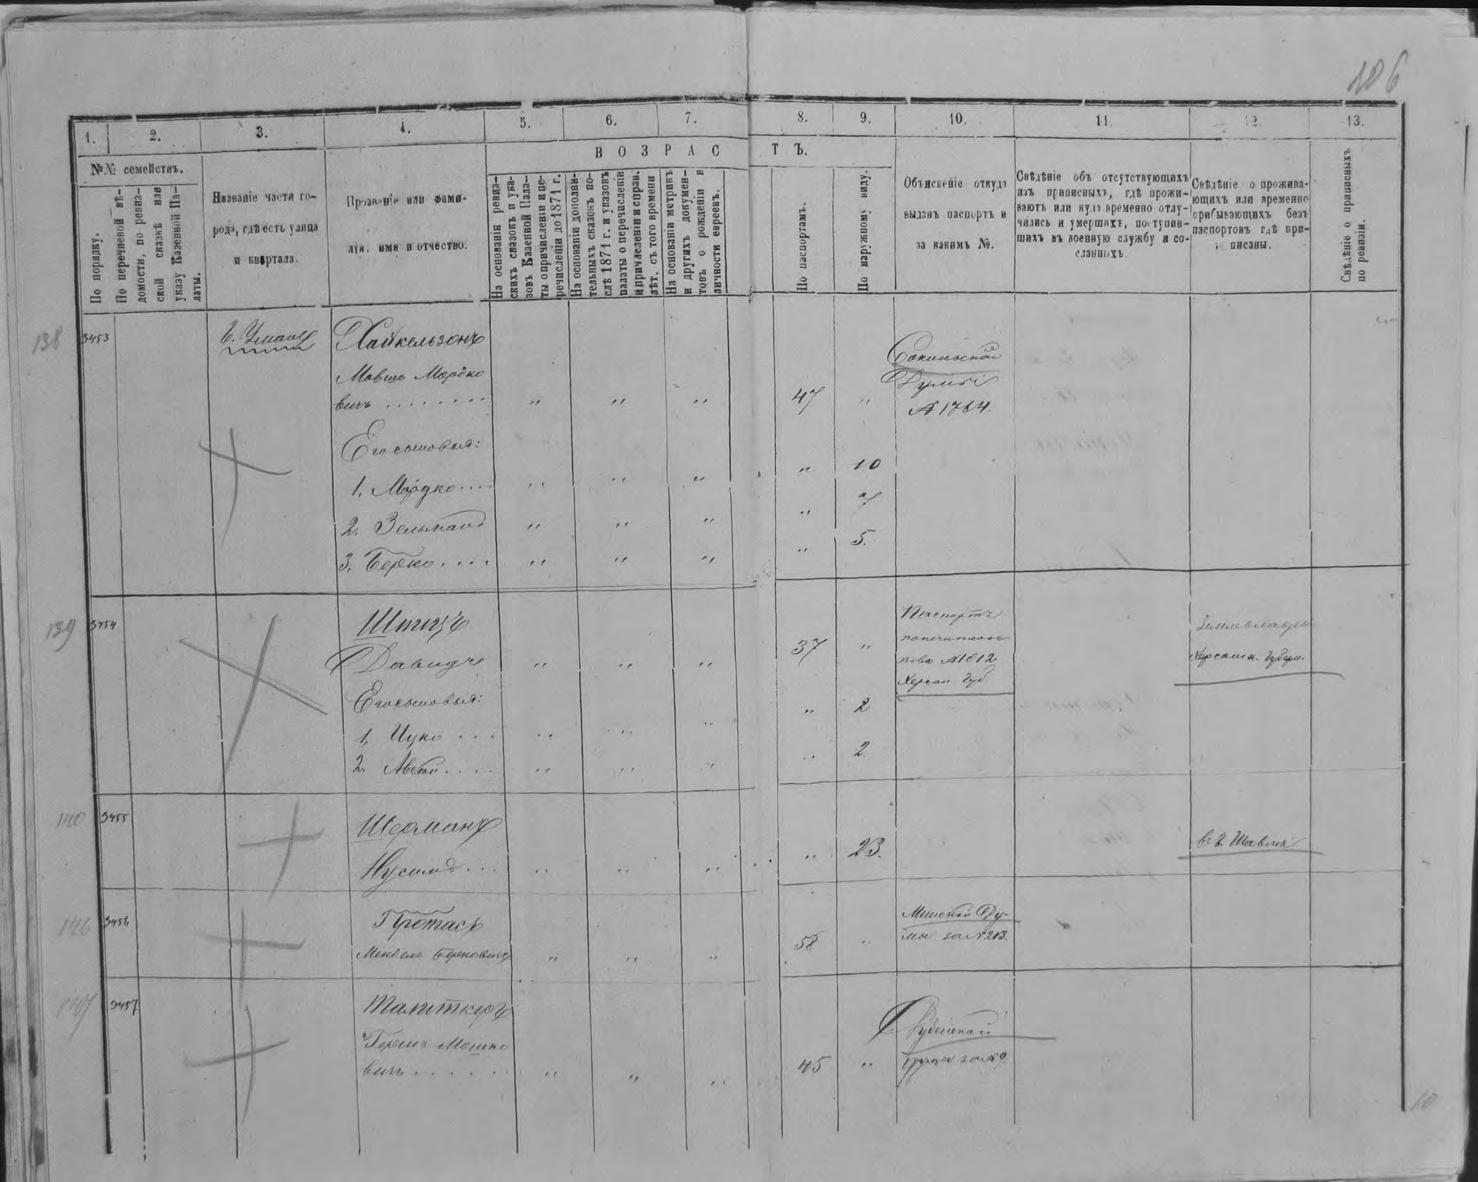 186
1. 2. 3. 4. 5. 6. 7. 8. 9. 10. 11. 12. 13.
№№ семействъ.
По порядку.
По перечневой вѣ-
домости, по ревиз-
ской сказкѣ или
указу Казенной Па-
латы.
Названіе части го-
рода, гдѣ есть улица
и квартала.
Прозваніе или фами-
лія, имя и отчество.
ВОЗРАСТЪ.
На основаніи ревиз-
скихъ сказокъ и ука-
зовъ Казенной Пала-
ты о причисленіи и пе-
речисленіи до 1871 г.
На основаніи дополни-
тельныхъ сказокъ по-
слѣ 1871 г. и указовъ
палаты о перечисленіи
и причисленіи и справ.
лѣт. съ того времени
На основаніи метрикъ
и другихъ докумен-
товъ о рожденіи и
личности евреевъ.
По паспортамъ.
По наружному виду.
Объясненіе откуда
выданъ паспортъ и
за какимъ №.
Свѣдѣніе объ отсутствующихъ
изъ приписныхъ, гдѣ прожи-
ваютъ или куда временно отлу-
чились и умершихъ, поступив-
шихъ въ военную службу и со-
сланныхъ.
Свѣдѣніе о прожива-
ющихъ или временно
прибывающихъ безъ
паспортовъ гдѣ при-
писаны.
Свѣдѣніе о приписныхъ
по ревизіи.
138 3453 Г. Умань Хайкельзонъ
Мовша Мордко
вичъ . . . . . . . . „ „ „ 47 „
Сокольской
Думы
№ 1784.
Его сыновья:
1. Мордко . . . . „ „ „ „ 10
2. Зельманъ „ „ „ „ 7
3. Берко . . . . „ „ „ „ 5.
139 3454 Шпицъ
Давидъ „ „ „ 37 „
Паспортъ
попечитель
ства № 1612
Херсон. Губ
Херсонск. Губерн.
Его сыновья:
1. Ицко . . . „ „ „ „ 2
2. . . . . „ „ „ „ 2
140 3455 Шерманъ
Нусимъ . . . „ „ „ „ 23.
въ г. Шавля
146 3456 Протасъ
Мендель Берковичъ „ „ „ 58 „
Минской Ду-
мы за № 213.
147 3457
Мошко
вичъ . . . . . . „ „ „ 45 „
10